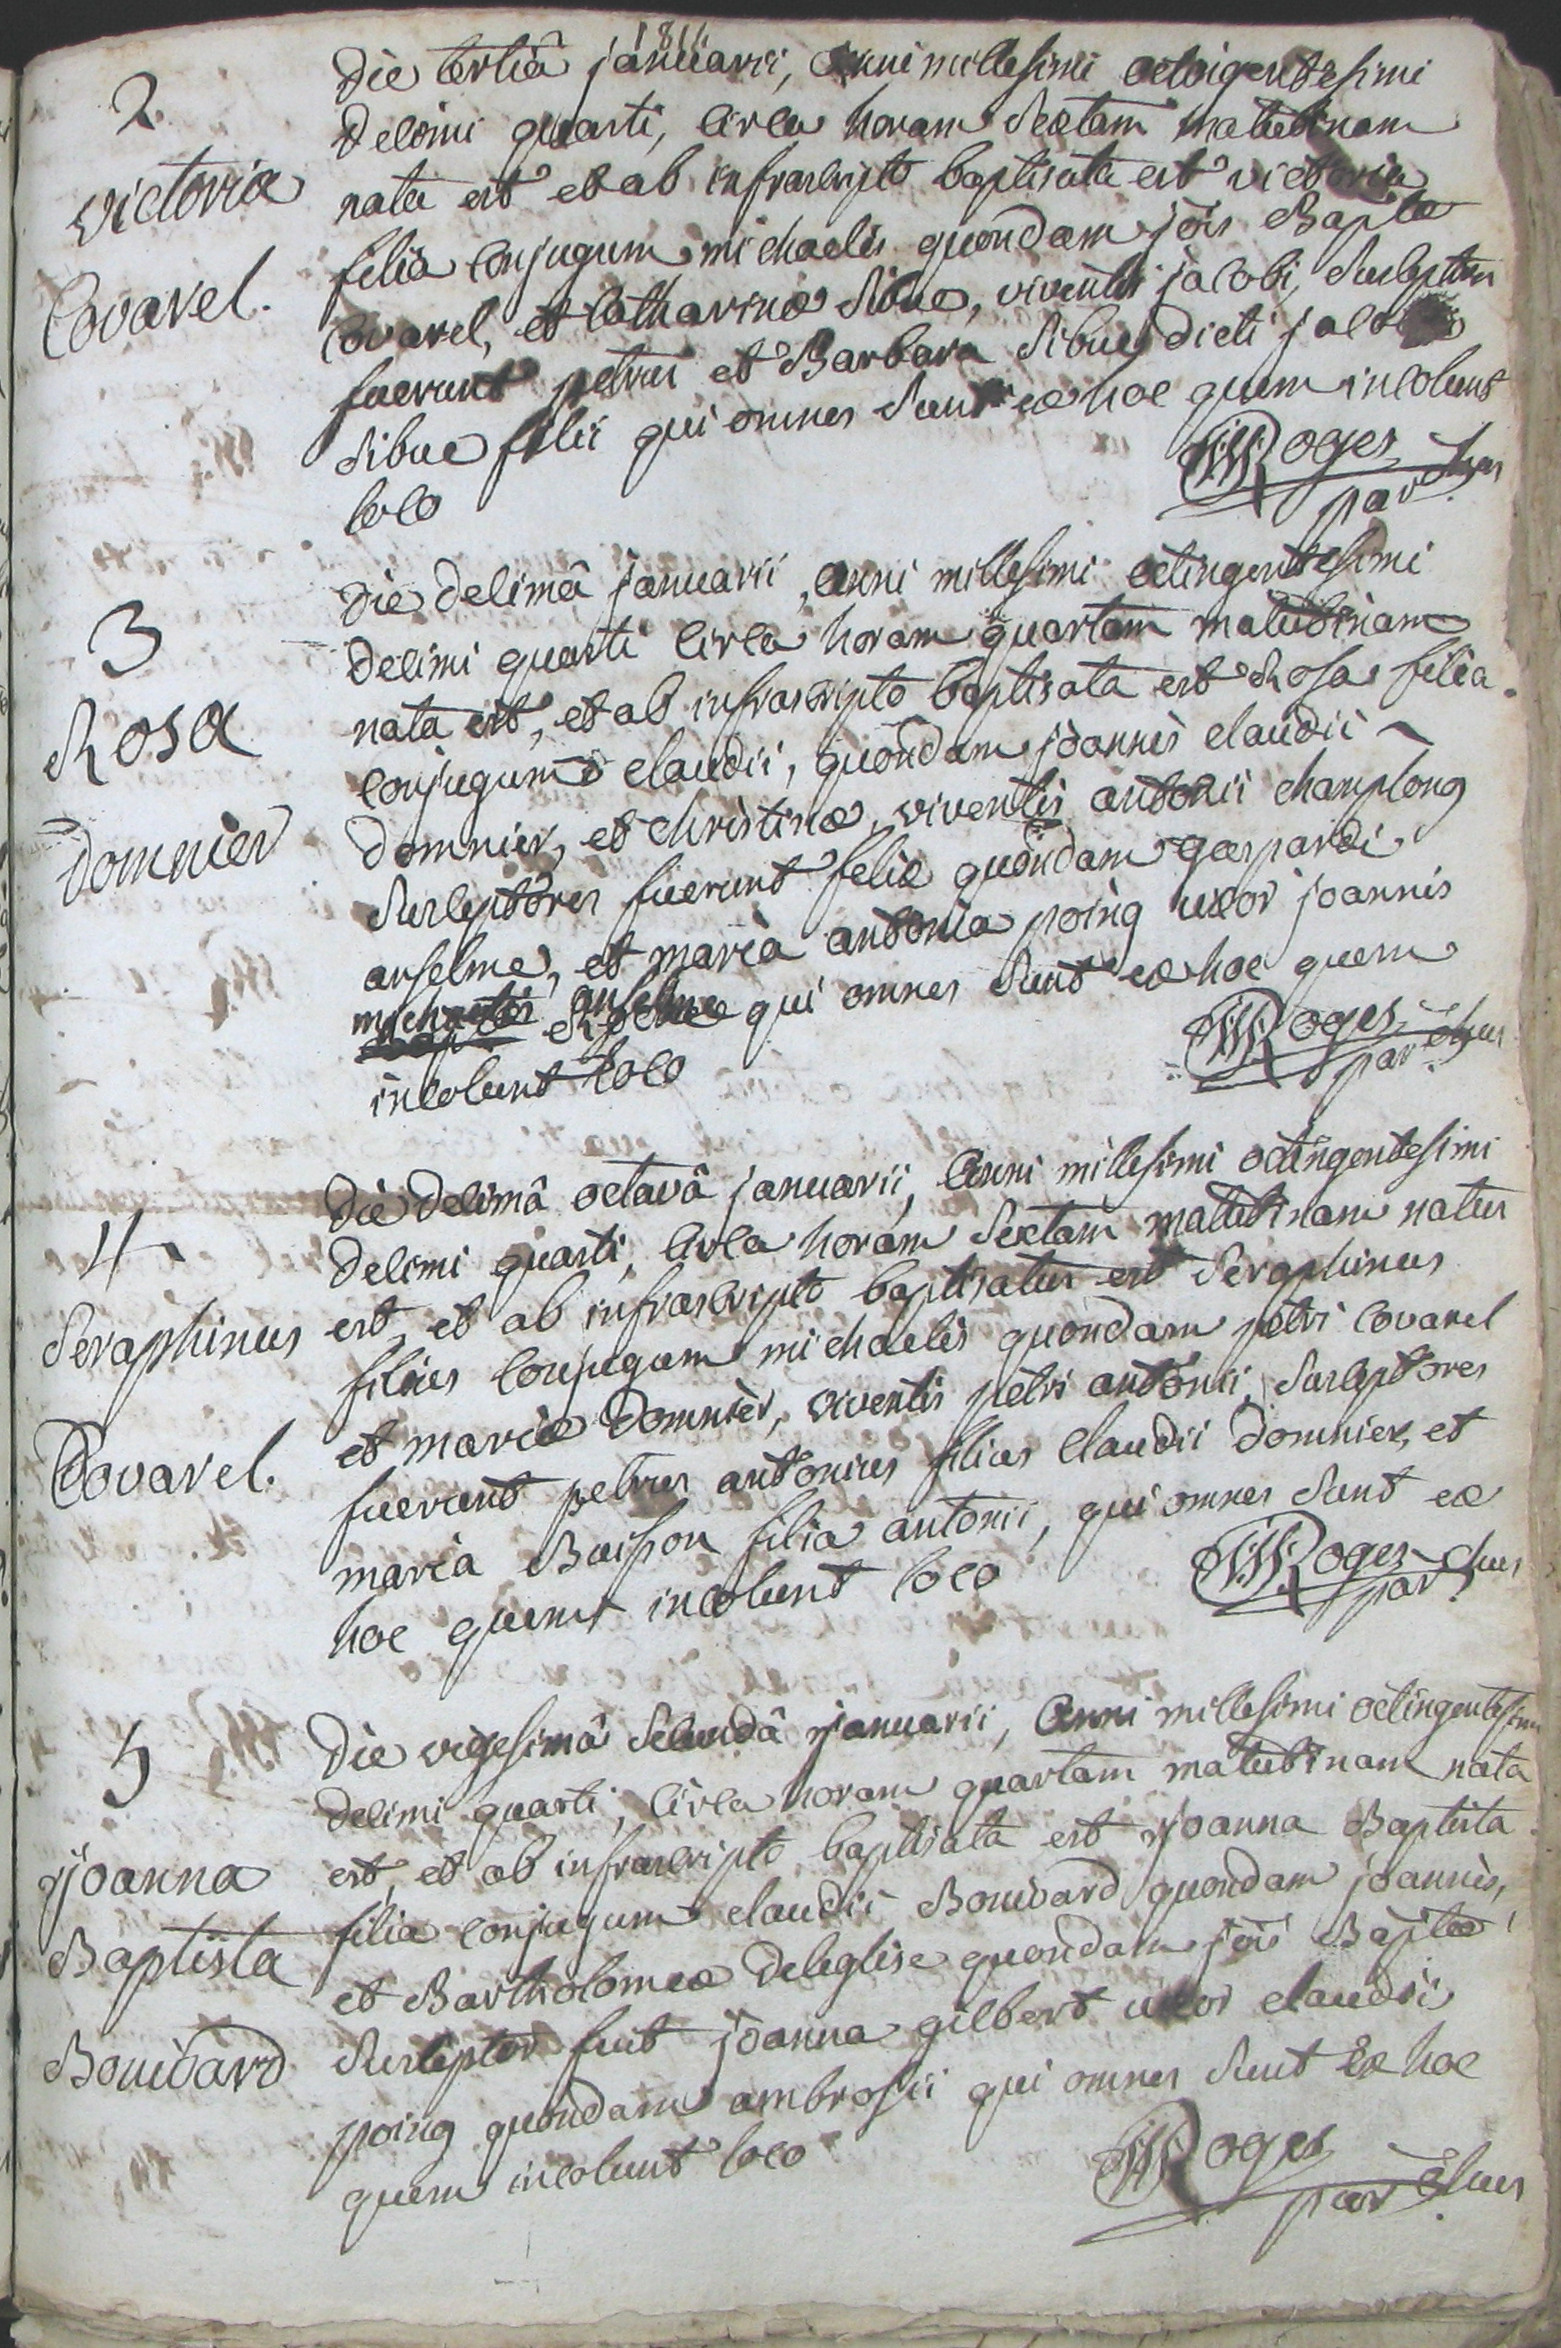 1814
2.
victoria
Covarel.
Die tertiâ januarii, Anni millesimi octingentesimi
decimi quarti, circa horam sextam matutinam
nata est et ab infrascripto baptisata est victoria
filia conjugum michaelis quondam jois Baptæ
Covarel, et Catharinæ Sibue, viventis jacobi, susceptores
fuerunt petrus et Barbara Sibue, dicti jacobi
Sibue filii qui omnes sunt ex hoc quem incolunt
loco
Roges
parchus
3
Rosa
Domnier
Die decimâ januarii, Anni millesimi octingentesimi
decimi quarti circa horam quartam matutinam
nata est, et ab infrascripto baptisata est Rosa filia
conjugum claudii, quondam joannis claudii
Domnier, et christinæ, viventis antonii champlong
susceptores fuerunt felix quondam gaspardi
anselme, et maria antonia poing uxor joannis
michaelis anselme
qui omnes sunt ex hoc quem
incolunt loco
Roges
parchus
4
Seraphinus
Covarel.
Die decimâ octavâ januarii, Anni millesimi octingentesimi
decimi quarti, circa horam sextam matutinam natus
est, et ab infrascripto baptisatus est Seraphinus
filius conjugum michaelis quondam petri Covarel
et mariæ Domnier, viventis petri antonii, susceptores
fuerunt petrus antonius filius claudii Domnier, et
maria Buisson filia antonii, qui omnes sunt ex
hoc quem incolunt loco
Roges
parchus
5
joanna
Baptista
Bouvard
Die vigesimâ secundâ januarii, Anni millesimi octingentesimi
decimi quarti, circa horam quartam matutinam nata
est, et ab infrascripto baptisata est joanna Baptista
filia conjugum claudii Bouvard quondam joannis,
et Bartholomeæ Deleglise quondam jois Baptæ
susceptor fuit joanna gilbert uxor claudii
poing quondam ambrosii qui omnes sunt Ex hoc
quem incolunt loco
Roges
parchus